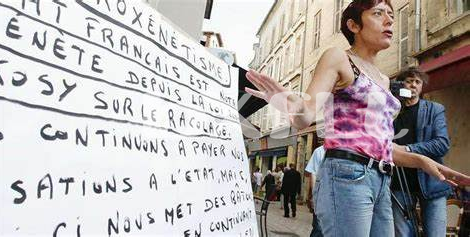 ROXÉNÉTISME.
T FRANÇAIS EST NOTRE
ÉNÈTE DEPUIS LA LOI
KOSY SUR LE RACOLAGE.
CONTINUONS A PAYER NOS
SATIONS A L'ETAT, MAIS,
CI NOUS MET DES BÂT
EN CONTINUANT